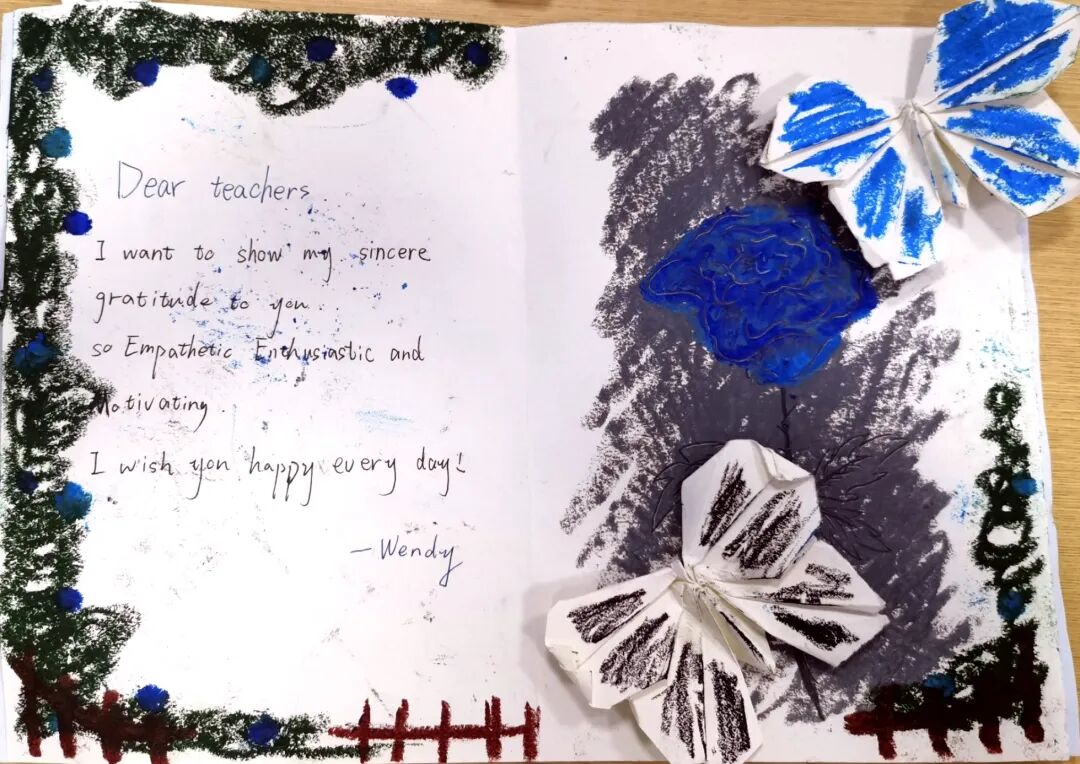 Dear teachers
I want to show my sincere
gratitude to you
so Empathetic Enthusiastic and
Motivating.
I wish you happy every day!
—Wendy